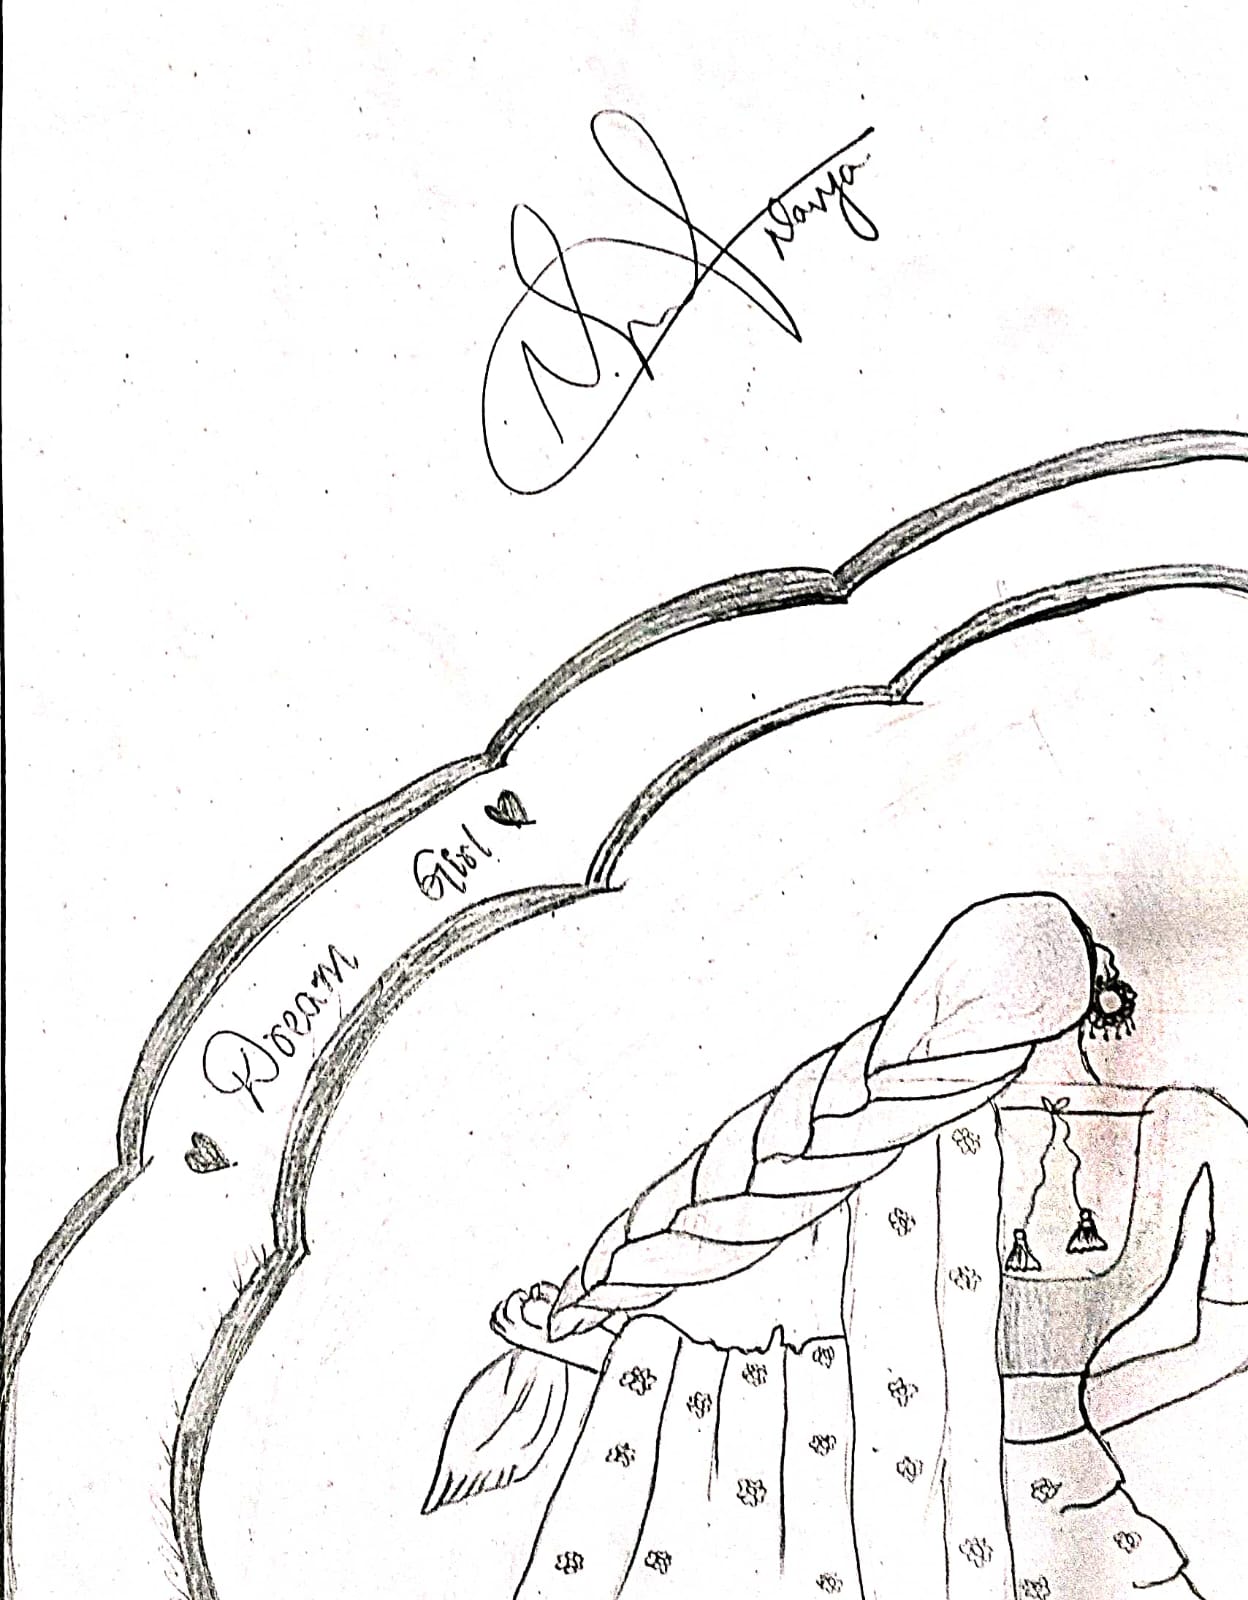 Navya
♥ Dream Girl ♥